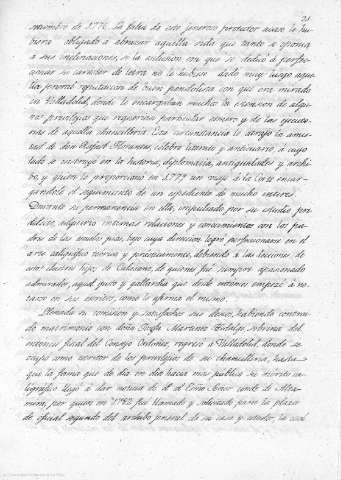 21
noviembre de 1776. La falta de este generoso protector acaso le hu-
biera obligado á abrazar aquella vida que tanto se oponia
á sus inclinaciones, si la aficion con que se dedicó á perfec-
cionar su caracter de letra no le hubiese dado muy luego aque-
lla general reputacion de buen pendolista con que era mirado
en Valladolid, donde le encargaban mucho la escision de algu-
nos privilegios que requerian particular esmero y de las ejecuto-
rias de aquella chancilleria. Esta circunstancia le atrajo la amis-
tad de don Rafael Floranes, célebre literato y anticuario, á cuyo
lado se instruyó en la historia, diplomacia, antigüedades y archi-
vos, y quien le proporcionó en 1779 un viaje á la Corte encar-
gandole el seguimiento de un espediente de mucho interes.
Durante su permanencia en ella, impulsado por su estudio pre-
dilecto, adquirió intimas relaciones y conocimientos con los pa-
dres de las escuelas pias, bajo cuya direccion logró perfeccionarse en el
arte caligrafico teorica y practicamente, debiendo á las lecciones de
aquellos ilustres hijos de Calasanz, de quienes fue siempre apasionado
admirador, aquel gusto y gallardia que desde entonces empezó á no-
tarse en sus escritos, como lo afirma el mismo.
Llenada su comision y satisfechos sus deseos, habiendo contrai-
do matrimonio con doña Josefa Martinez Hidalgo, sobrina del
entonces fiscal del Consejo Ordoñez, regresó á Valladolid, donde se
ocupó como escritor de los privilegios de su chancilleria, hasta
que la fama que de dia en dia hacia mas publico su merito ca-
ligrafico llegó á dar noticia de él al Escmo Señor conde de Alta-
mira, por quien en 1782 fué llamado y colocado para la plaza
de oficial segundo del archivo general de su casa y estados, la cual